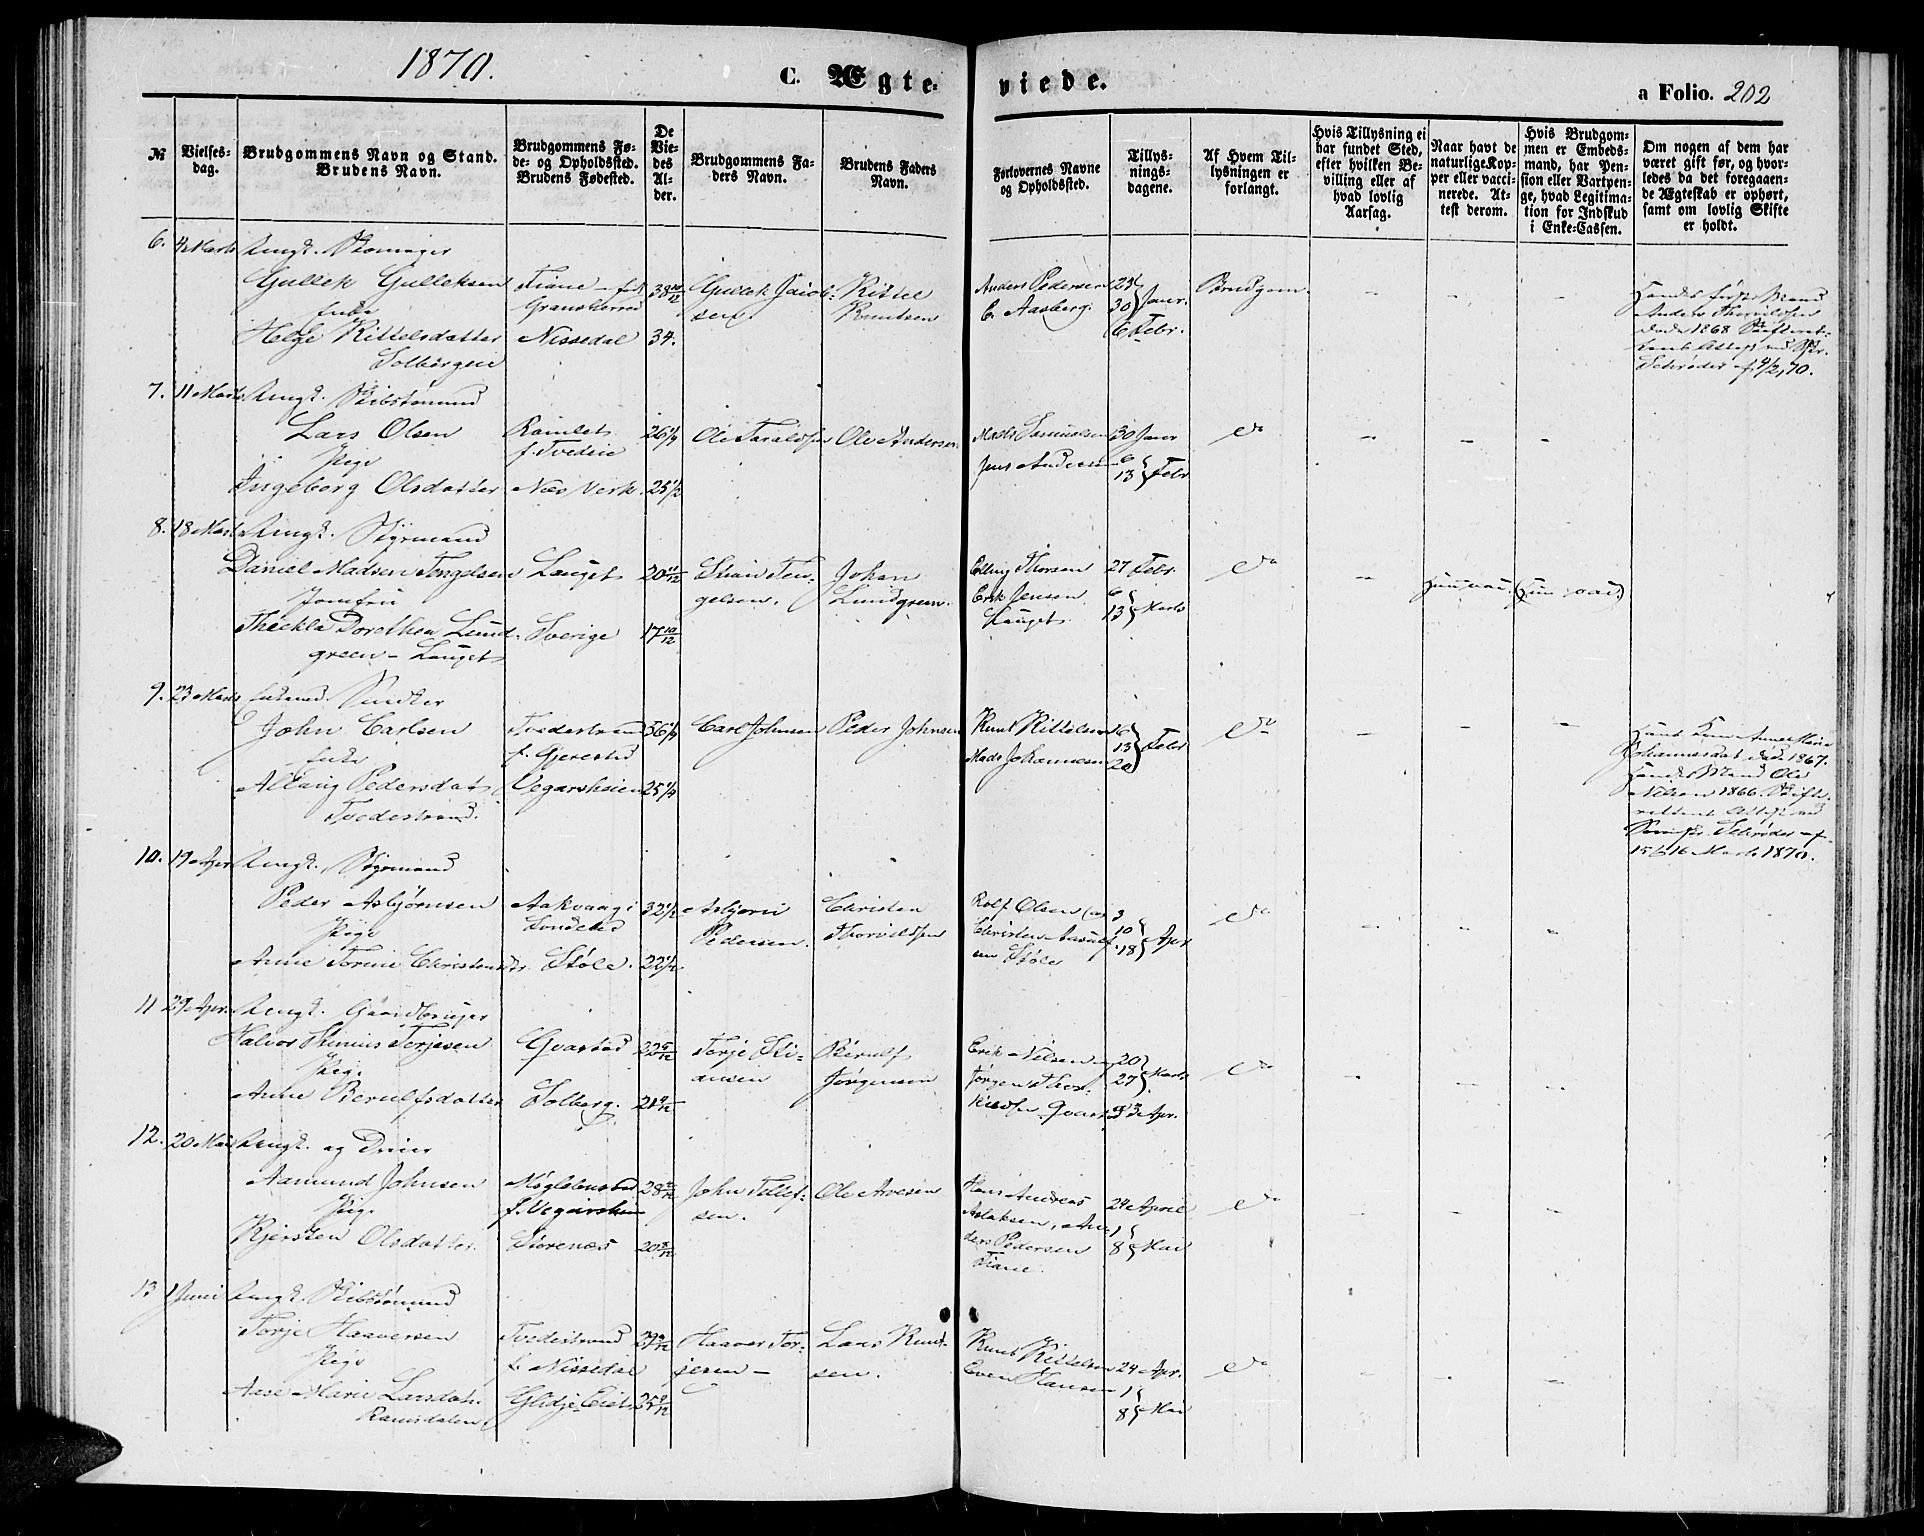 1870.
C. Ægte-
viede.
a Folio. 202
№
Vielses-
dag.
Brudgommens Navn og Stand.
Brudens Navn.
Brudgommens Fø-
de- og Opholdssted.
Brudens Fødested.
De
Vie-
des
Al-
der.
Brudgommens Fa-
ders Navn.
Brudens Faders
Navn.
Forlovernes Navne
og Opholdssted.
Tillys-
nings-
dagene.
Af Hvem Til-
lysningen er
forlangt.
Hvis Tillysning ei
har fundet Sted,
efter hvilken Be-
villing eller af
hvad lovlig
Aarsag.
Naar havt de
naturlige Kop-
per eller vacci-
nerede. At-
test derom.
Hvis Brudgom-
men er Embeds-
mand, har Pen-
sion eller Vartpen-
ge, hvad Legitima-
tion for Indskud
i Enke-Cassen.
Om nogen af dem har
været gift før, og hvor-
ledes da det foregaaen-
de Ægteskab er ophørt,
samt om lovlig Skifte
er holdt.
6. Marts Ungk. Skomager
Gullek Gulleksen
Enke
Helge Kittelsdatter
Solbergeie
Tiane
Nissedal
38 10/12
34.
Gullek Jacob-
sen
Kittel
Knutsen
Anders Pedersen
C. Aasberg.
23
30 } Janr.
6 Febr.
Brudgom.
Hendes første Mand
Anders Thorvildsen
døde 1868
Schrøder af 4/2 70.
7. 11 Marts Ungk. Skibstømmd
Lars Olsen
Pige
Ingeborg Olsdatter
Ramlet
f. Tvedeie
Næs Verk.
26 1/4
25 1/2
Ole Taraldsen
Ole Andersen
Mads Samuelsen
Jens Andersen
30 Janr
6
13 } Febr
do
8. 18 Marts Ungk. Styrmand
Daniel Madsen Tengelsen
Jomfru
Theckla Dorothea Lund-
green - Lauget
Lauget
Sverige
20 11/12
17 10/12
Ten-
gelsen.
Johan
Lundgreen.
Elling Thorsen
Erik Jensen
Lauget
27 Febr.
6
13 } Marts
do
Hun vac. (Hun vac)
9. 23 Marts Enkemd. Snedker
John Carlsen
Enke
Allaug Pedersdat.
Tvedestrand.
Tvedestrand
f. Gjerestad
Vegarsheien
56 1/4
25 1/4
Carl Johnsen
Peder Johnsen
Knut Kittelsen
Mads Johannesen
6
13
20 } Febr
do
Hans Kone Anne Marie
Johannesdat. døde 1867.
Hendes Mand Ole
Nilsen 1866.
Schrøder af
15 & 16 Marts 1870.
10. 19 Apr Ungk. Styrmand
Peder Asbjørnsen
Pige
Anne Torine Christensdr.
Aakvaag i
Søndeled
Støle.
32 1/2
22 1/2
Asbjørn
Pedersen.
Christen
Thorvildsen
Rolf Olsen
Christen
Støle
3
10
18 } Apr
do
11 29 Apr. Ungk. Gaardbruger
Halvor Thinius Terjesen
Pige.
Anne Berulfsdatter
Qvastad
Solberg.
22 5/12
21 9/12
Terje Sti-
ansen
Berulf
Jørgensen
Erik Nilsen
Jørgen
Qvast
20
27 } Marts
3 Apr.
do
12. 20 Mai Ungk. og Dreier
Aamund Johnsen
Pige.
Kjersten Olsdatter
Møglebustad
f. Vegarsheien
Storenæs
John Tellef-
sen.
Ole Avesen
Hans Andreas
Aslaksen, An-
ders Pedersen
Tiane.
24 April
1
8 } Mai
do
13 1 Juni Ungk. Skibstømmd
Terje Haaversen
Pige
Aase Marie Larsdat.
Ramsdalen
Tvedestrand
f. Nissedal
Haaver Ter-
jesen -
Lars Knud-
sen.
Knut Kittelsen
Even Hansen
24 Apr.
1
8 } Mai
do